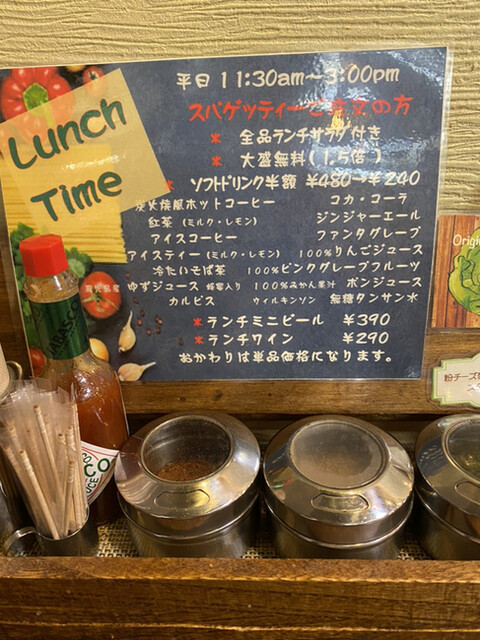 Lunch Time
平日 11:30am〜3:00pm
スパゲッティーご注文の方
* 全品ランチサラダ付き
* 大盛無料(1.5倍)
* ソフトドリンク半額 ¥480→¥240
炭火焙煎ホットコーヒー コカ・コーラ
紅茶(ミルク・レモン) ジンジャーエール
アイスコーヒー ファンタグレープ
アイスティー(ミルク・レモン) 100%りんごジュース
冷たいそば茶 100%ピンクグレープフルーツ
ゆずジュース 蜂蜜入り 100%みかん果汁 ポンジュース
カルピス ウィルキンソン 無糖タンサン水
* ランチミニビール ¥390
* ランチワイン ¥290
おかわりは単品価格になります。
Origin
粉チーズ
TABASCO
CO